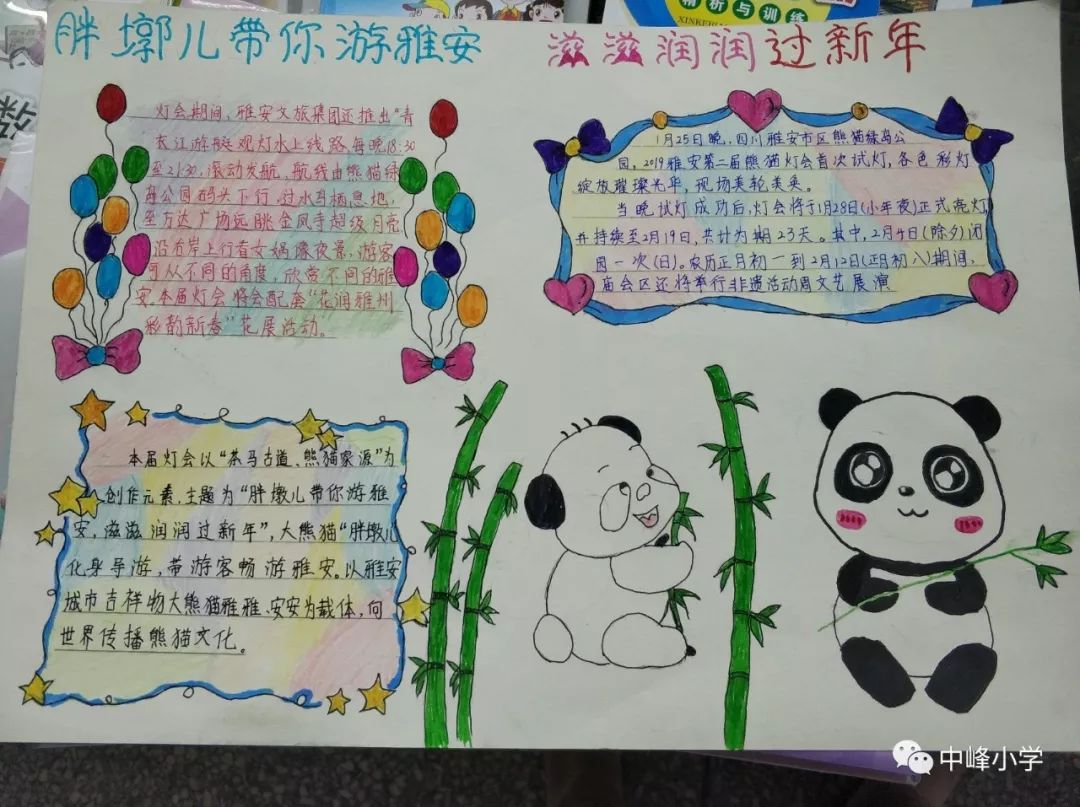 精析与训练
胖墩儿带你游雅安 滋滋润润过新年
灯会期间,雅安文旅集团还推出“青
衣江游艇观灯水上线路,每晚18:30
至21:30,滚动发航,航线由熊猫绿
岛公园码头下行,过水马栖息地,
至万达广场远眺金凤寺超级月亮
沿右岸上行看女娲像夜景,游客
可从不同的角度,欣赏不同的雅
安.本届灯会将会配套“花润雅州
彩韵新春”花展活动。
1月25日晚,四川雅安市区熊猫绿岛公
园,2019雅安第二届熊猫灯会首次试灯,各色彩灯
绽放璀璨光华,现场美轮美奂。
当晚试灯成功后,灯会将于1月28日(小年夜)正式亮灯
并持续至2月19日,共计为期23天。其中,2月4日(除夕)闭
园一次(日)。农历正月初一到2月12日(正月初八)期间,
庙会区还将举行非遗活动周文艺展演
本届灯会以“茶马古道、熊猫家源”为
创作元素,主题为“胖墩儿带你游雅
安,滋滋润润过新年”,大熊猫“胖墩儿
化身导游,带游客畅游雅安。以雅安
城市吉祥物大熊猫雅雅、安安为载体,向
世界传播熊猫文化。
中峰小学